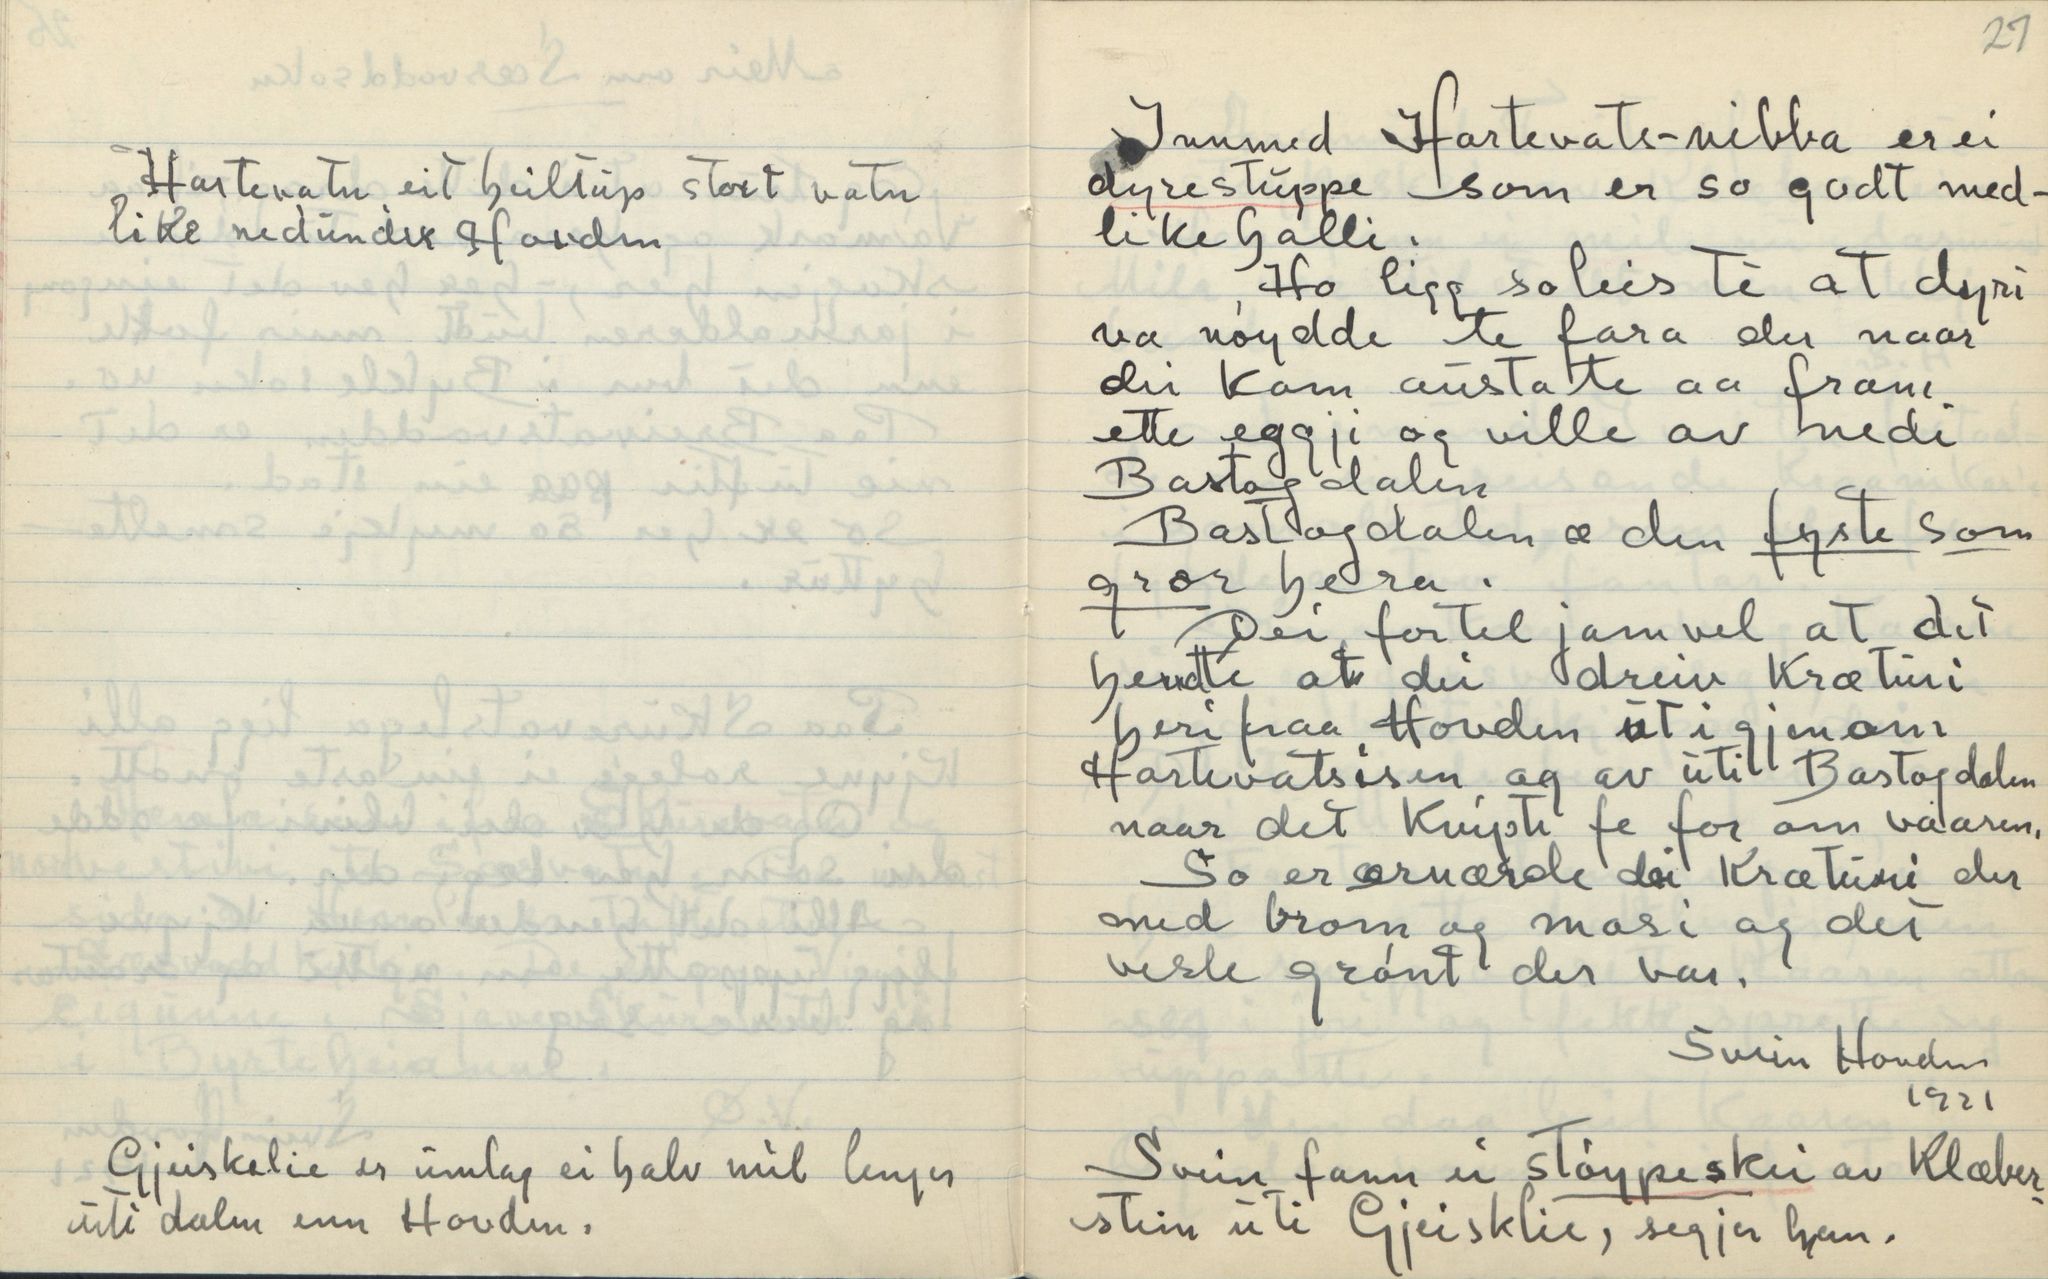 Hartevatn, eit heiltúp stort vatn
like nedúnder Hovden
Gjeiskelie er úmlag ei halv mil lenger
úti dalen enn Hovden.
27
Innmed Hartevats-nibba er ei
dyrestúppe som er so godt med-
like halli.
Ho ligg soleis te at dyri
va nóydde te fara der naar
dei kom aústate aa fram
ette eggji og ville av nedi
Bastogdalen
Bastogdalen æ den fyste som
gror hera.
Dei fortel jamvel at det
hendte at dei dreiv krætúri
heri fraa Hovden úti gjenom
Hartevatsisen og av úti Bastogdalen
naar det knipte fe for om vaaren.
So er ernærde dei krætúri der
med brom og mosi og det
vesle grónt der var.
Svein Hovden
1921
Svein fann ei stóypeskei av Klæber-
stein úti Gjeisklie, segjer han.